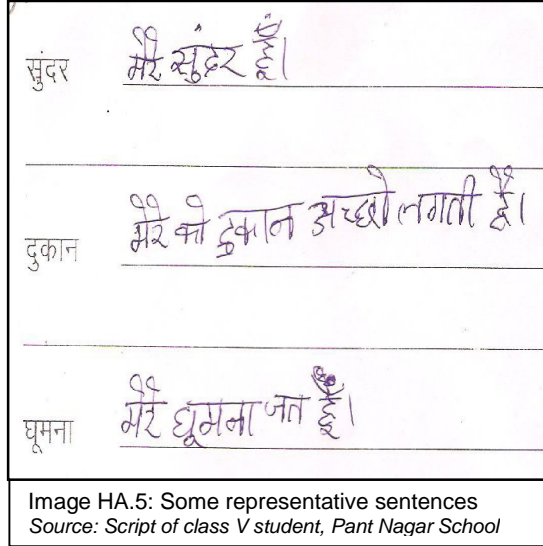 सुंदर मेरे सुंदर हूँ।
दुकान मेरे को दुकान अच्छी लगती है।
घूमना मेरे घूमना जत हूँ।
Image HA.5: Some representative sentences
Source: Script of class V student, Pant Nagar School